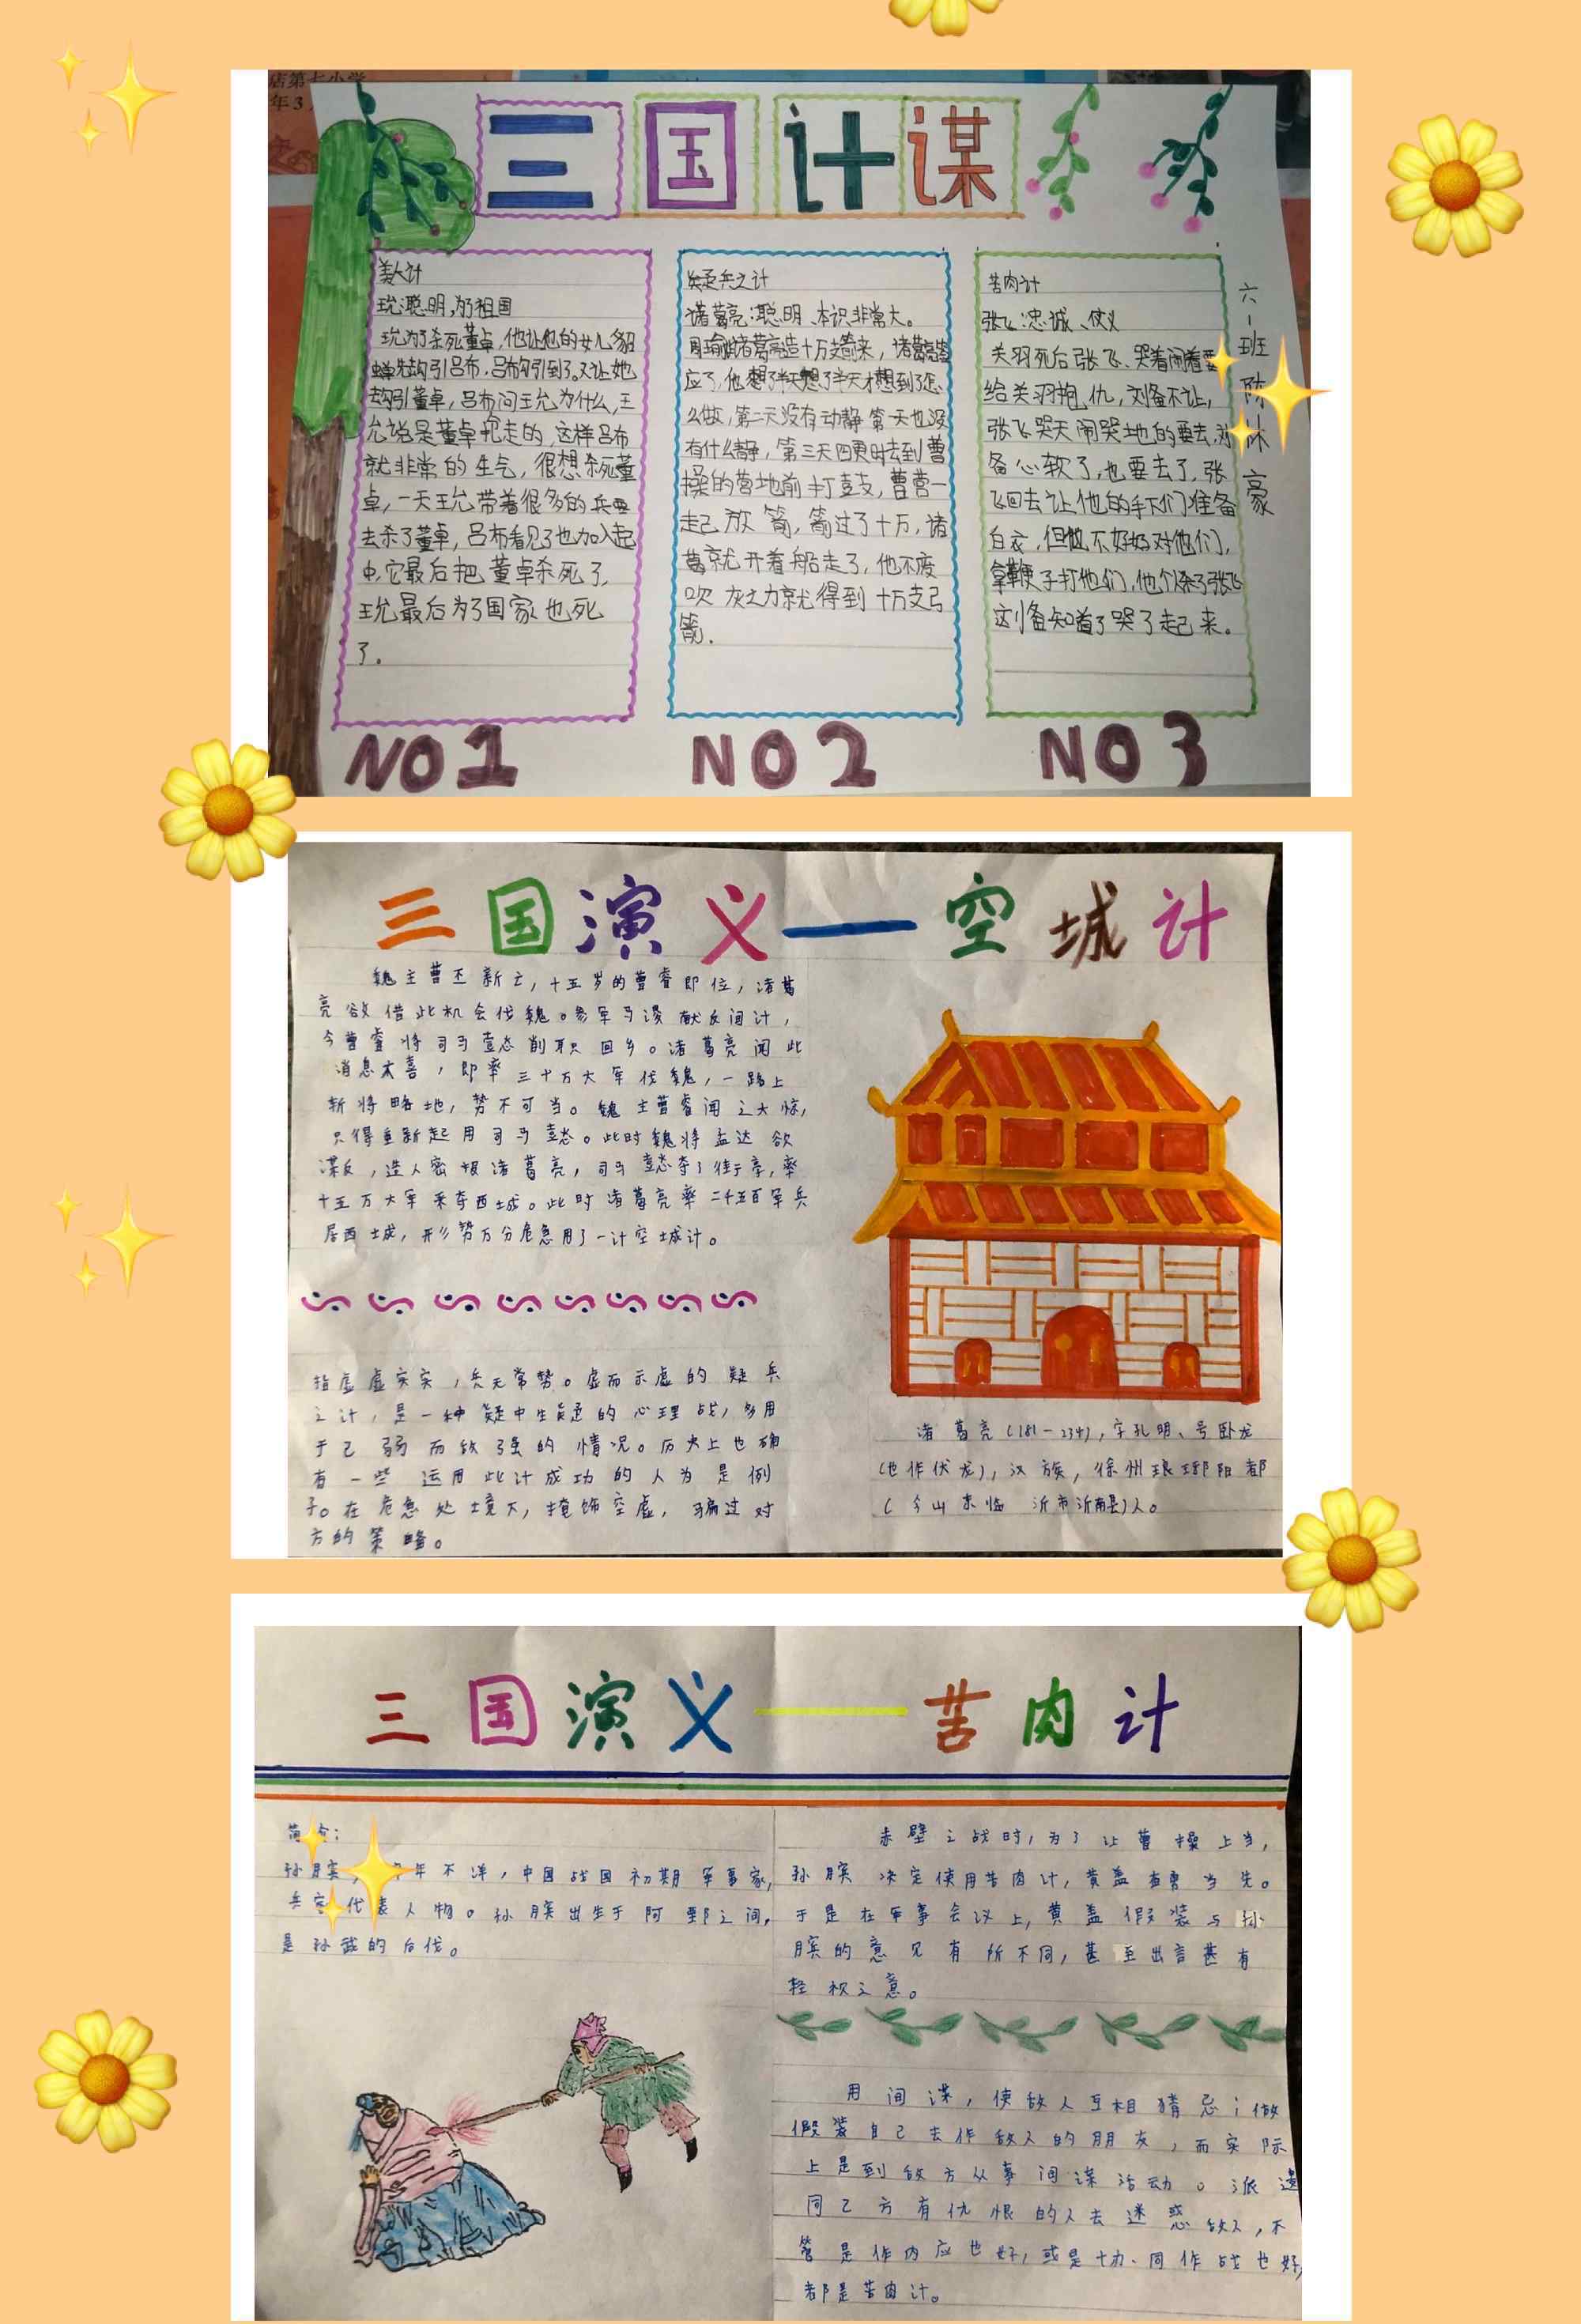 店第七小学
年3
三国计谋
美人计
王允:聪明,为了祖国
王允为了杀死董卓,他让他的女儿貂
蝉先勾引吕布,吕布勾引到了。又让她
去勾引董卓,吕布问王允为什么,王
允说是董卓抢走的,这样吕布
就非常的生气,很想杀死董
卓,一天王允带着很多的兵要
去杀了董卓,吕布看见了也加入起
中,它最后把董卓杀死了,
王允最后为了国家也死
了。
NO1
疑兵之计
诸葛亮:聪明、本识非常大。
周瑜让诸葛亮造十万支箭来,诸葛亮答
应了,他想了半天想了半天才想到了怎
么做,第二天没有动静第一天也没
有什么静,第三天四更时去到曹
操的营地前打鼓,曹营一
起放箭,箭过了十万,诸
葛就开着船走了,他不废
吹灰之力就得到十万支弓
箭.
NO2
苦肉计
张飞:忠诚、仗义
关羽死后张飞、哭着闹着要
给关羽抱仇,刘备不让,
张飞哭天闹哭地的要去,刘
备心软了,也要去了,张
飞回去让他的手下们准备
白衣,但他不好好对他们,
拿鞭子打他们,他们杀了张飞
这刘备知道了哭了起来。
NO3
六一班陈林豪
三国演义——空城计
魏主曹丕新亡,十五岁的曹睿即位,诸葛
亮欲借此机会伐魏。参军马谡献反间计,
令曹睿将司马懿削职回乡。诸葛亮闻此
消息大喜,即率三十万大军伐魏,一路上
斩将略地,势不可当。魏主曹睿闻之大惊,
只得重新起用司马懿。此时魏将孟达欲
谋反,造人密报诸葛亮,司马懿夺了街亭,率
十五万大军来夺西城。此时诸葛亮率二千五百军兵
居西城,形势万分危急用了一计空城计。
指虚虚实实,兵无常势。虚而示虚的疑兵
之计,是一种疑中生疑的心理战,多用
于己弱而敌强的情况。历史上也确
有一些运用此计成功的人为是例
子。在危急处境下,掩饰空虚,骗过对
方的策略。
诸葛亮(181-234),字孔明、号卧龙
(也作伏龙),汉族,徐州琅琊阳都
(今山东临沂市沂南县)人。
三国演义——苦肉计
简介:
孙膑,年不详,中国战国初期军事家,
兵家代表人物。孙膑出生于阿鄄之间,
是孙武的后代。
赤壁之战时,为了让曹操上当,
孙膑决定使用苦肉计,黄盖首当先。
于是在军事会议上,黄盖假装与孙
膑的意见有所不同,甚至出言甚有
轻视之意。
用间谍,使敌人互相猜忌;做
假装自己去作敌人的朋友,而实际
上是到敌方从事间谍活动。派遣
同己方有仇恨的人去迷惑敌人,不
管是作内应也好,或是协同作战也好,
都是苦肉计。